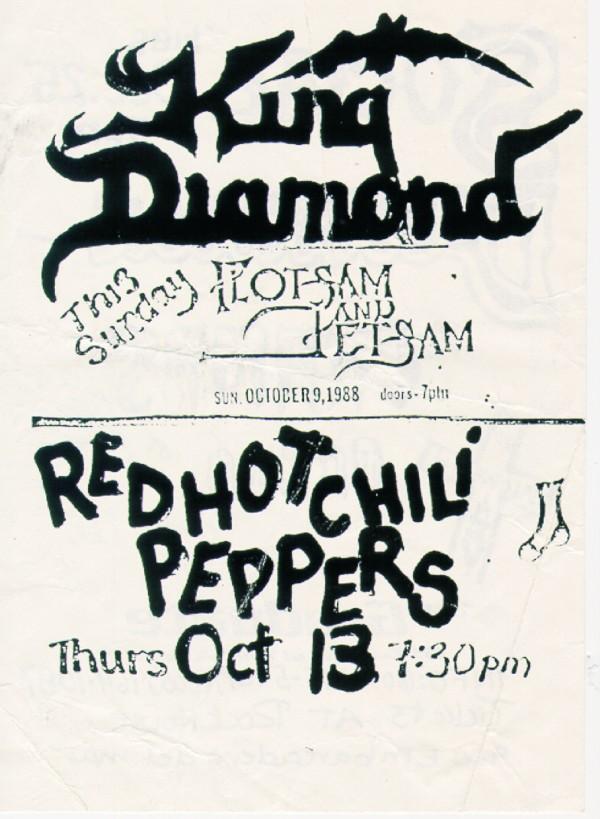 King
Diamond
This
Sunday
FLOTSAM
AND
JETSAM
SUN. OCTOBER 9, 1988 doors - 7pm
RED HOT CHILI
PEPPERS
Thurs Oct 13 7:30pm